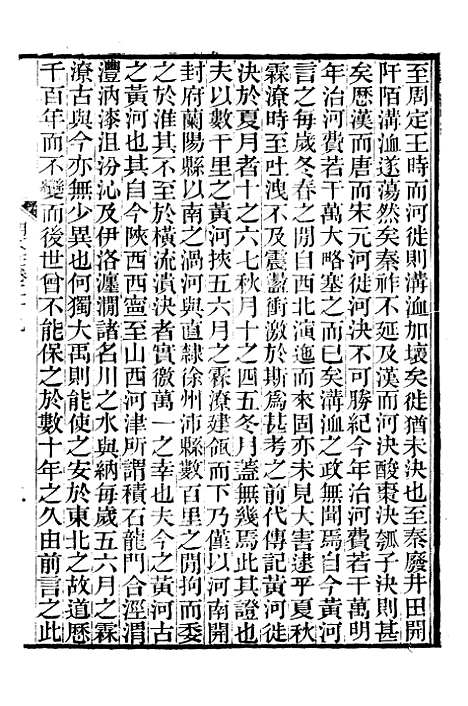 至周定王時而河徙則溝洫加壞矣徙猶未決也至秦廢井田開
阡陌溝洫遂蕩然矣秦祚不延及漢而河決酸棗決瓠子決則甚
矣歷漢而唐而宋元河徙河決不可勝紀今年治河費若干萬明
年治河費若干萬大略塞之而已矣溝洫之政無聞焉自今黃河
言之每歲冬春之閒自西北演迤而來固亦未見大害逮乎夏秋
霖潦時至吐洩不及震盪衝激於斯爲甚考之前代傳記黃河徙
決於夏月者十之六七秋月十之四五冬月蓋無幾焉此其證也
夫以數千里之黃河挾五六月之霖潦建瓴而下乃僅以河南開
封府蘭陽縣以南之渦河與直隷徐州沛縣數百里之閒拘而委
之於淮其不至於橫流潰決者實徼萬一之幸也夫今之黃河古
之黃河也其自今陝西西寧至山西河津所謂積石龍門合涇渭
灃汭漆沮汾沁及伊洛瀍澗諸名川之水與納每歲五六月之霖
潦古與今亦無少異也何獨大禹則能使之安於東北之故道歷
千百年而不變而後世曾不能保之於數十年之久由前言之此